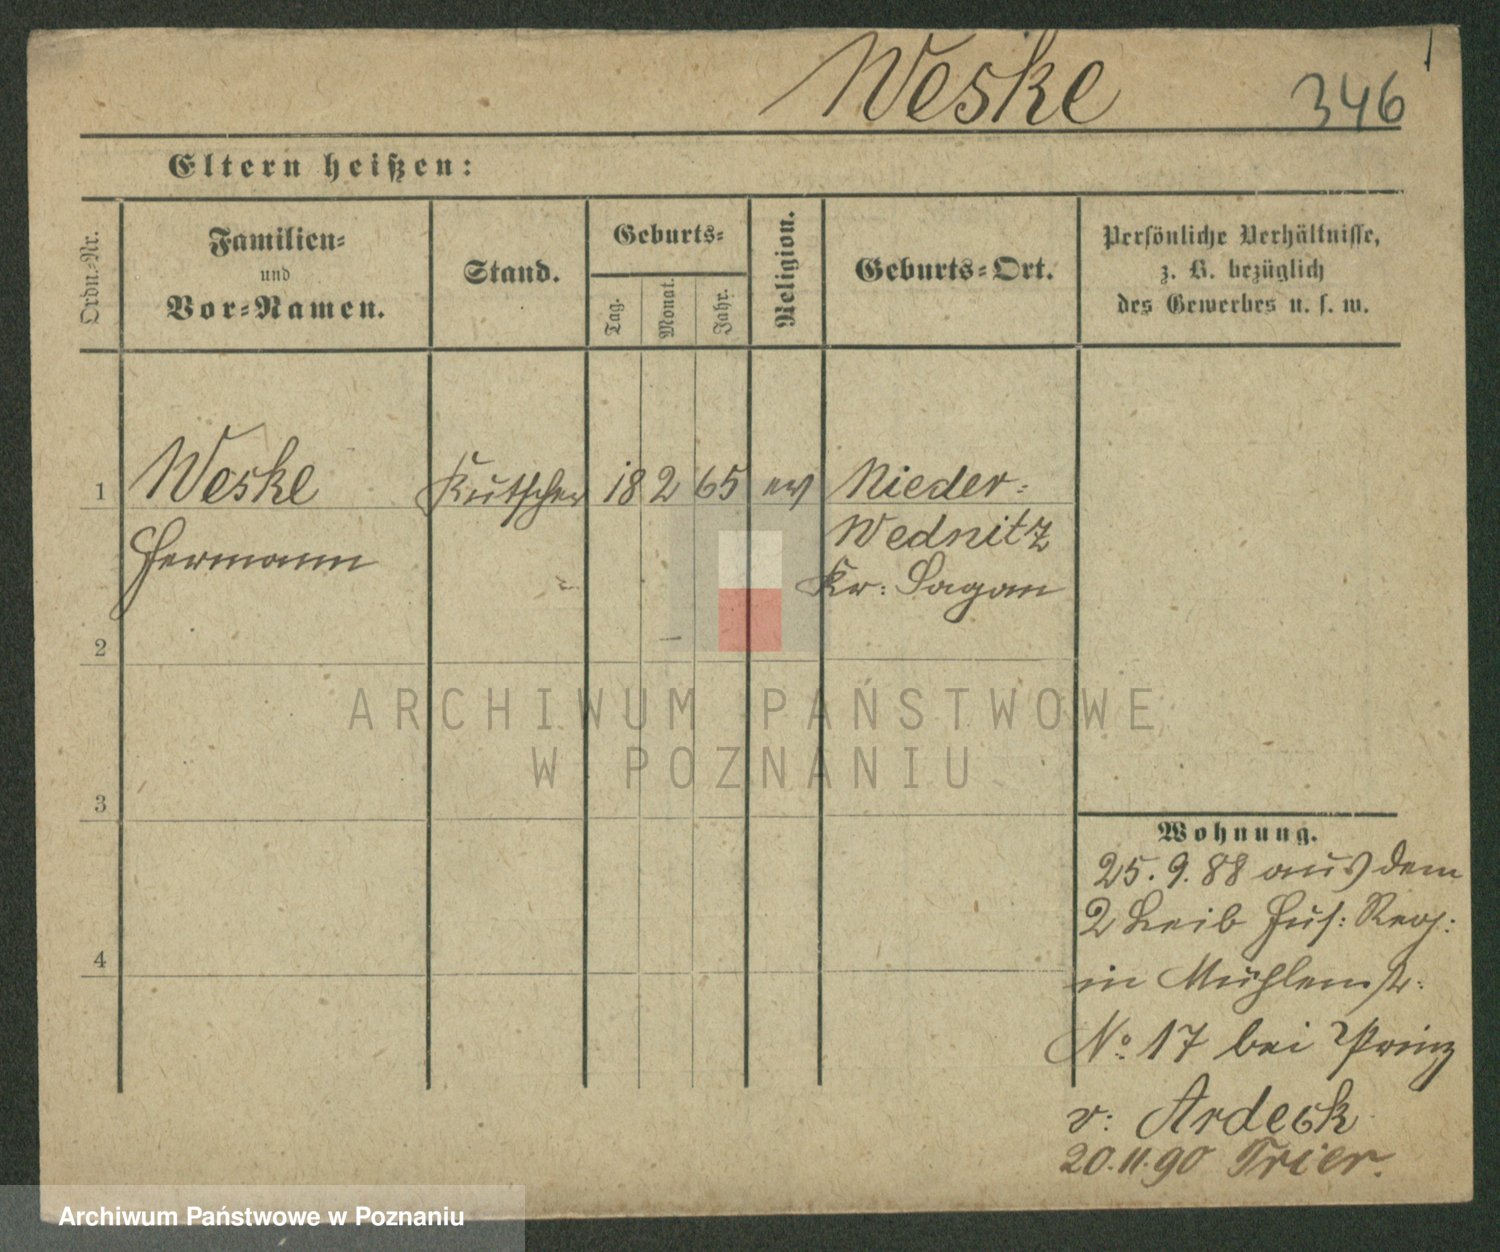 Weske 346
Eltern heißen:
Ordn.-Nr.
Familien-
und
Vor-Namen.
Stand.
Geburts-
Tag.
Monat.
Jahr.
Religion.
Geburts-Ort.
Persönliche Verhältnisse,
z. B. bezüglich
des Gewerbes u. s. w.
1 Weske Kutscher 18 2 65 ev Nieder-
Hermann
Wednitz
Kr: Sagan
2
ARCHIWUM PAŃSTWOWE
W POZNANIU
3
Wohnung.
25. 9. 88 aus dem
2 Leib Hus: Reg:
4
in Mühlenstr:
No 17 bei Prinz
v: Ardeck
20.11.90 Trier.
Archiwum Państwowe w Poznaniu